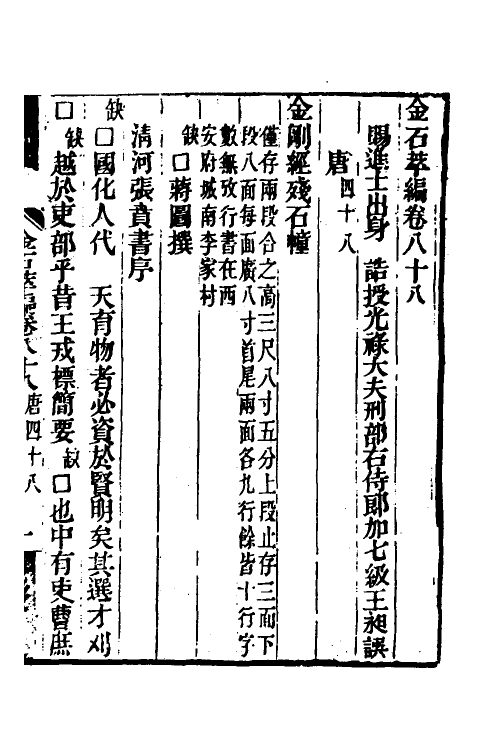 金石萃編卷八十八
賜進士出身　誥授光祿大夫刑部右侍郎加七級王昶譔
唐四十八
金剛經殘石幢
僅存兩段合之高三尺八寸五分上段止存三面下
段八面每面廣八寸首尾兩面各九行餘皆十行字
數無攷行書在西
安府城南李家村
缺□蔣圖撰
清河張賁書序
缺□國化人代　天育物者必資於賢明矣其選才刈
□缺越於吏部乎昔王戎標簡要缺□也中有吏曹庶
金石萃編卷八十八　唐四十八　一